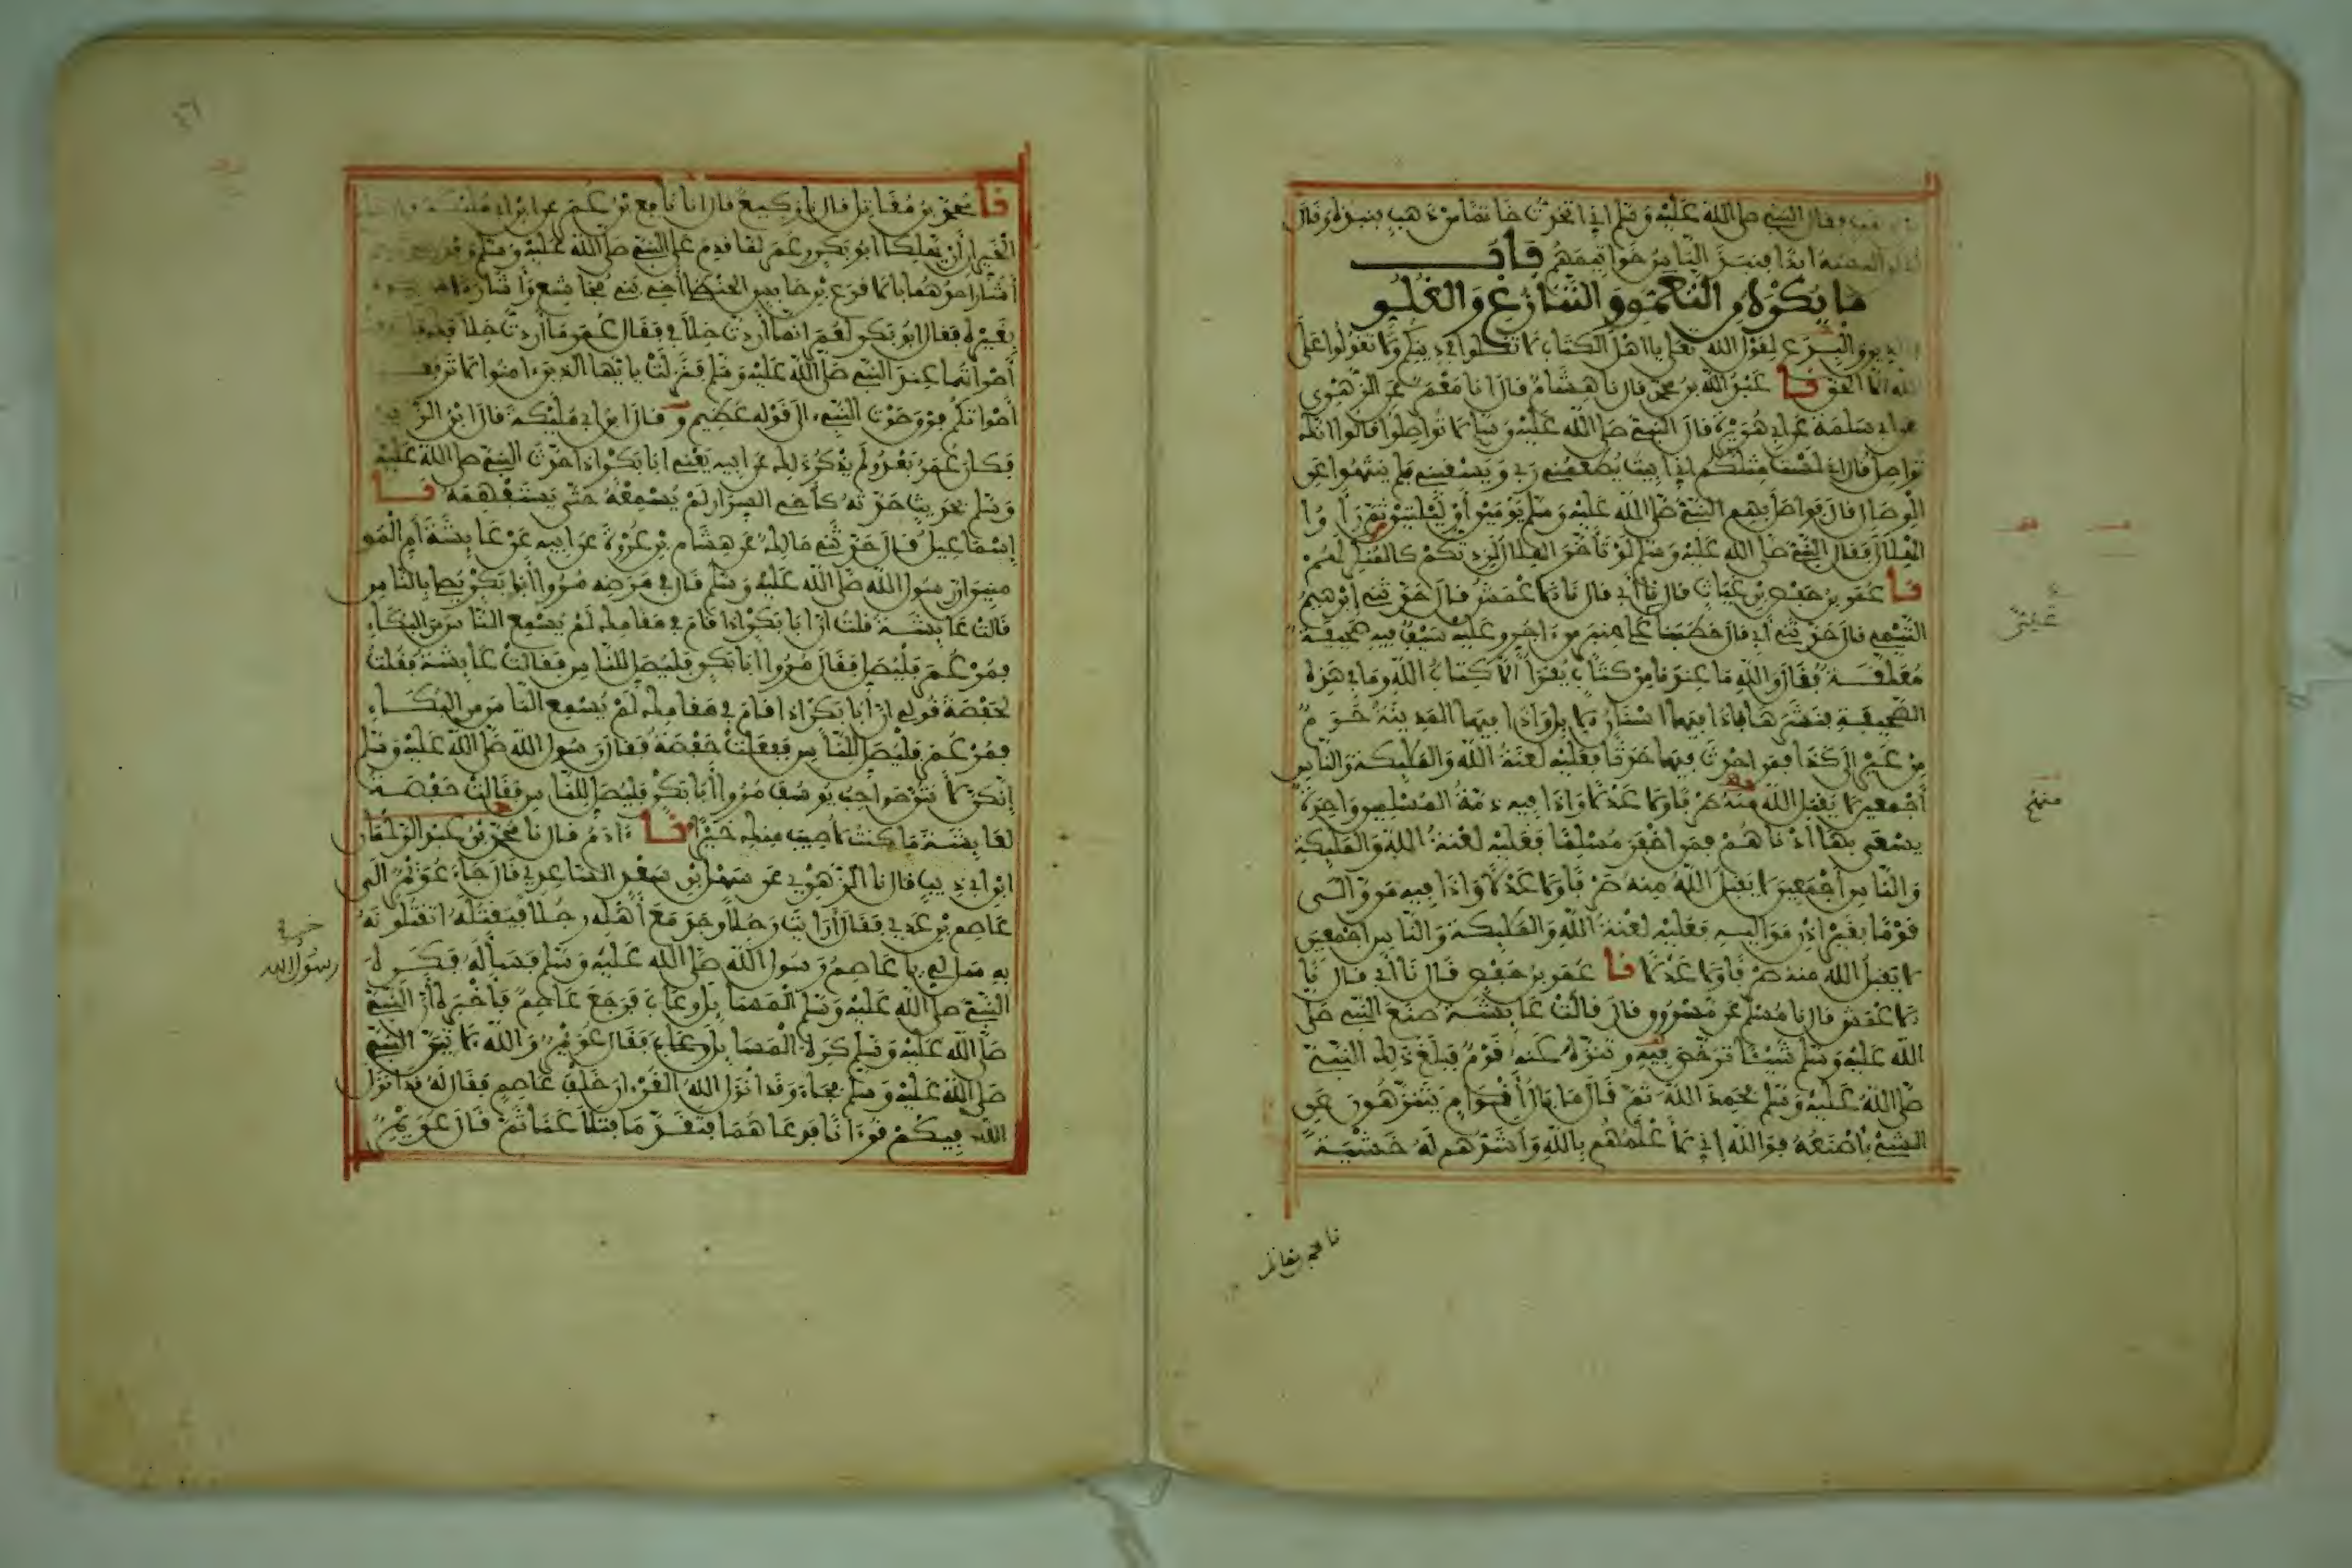 ذهب وقال النبي صلى الله عليه وسلم إني اتخذت خاتما من ذهب فنبذه وقال
لن البسه أبدا فنبذ الناس خواتيمهم باب
ما يكره من التعمق والتنازع والغلو
في الدين والبدع لقول الله تعلى يا أهل الكتاب لا تغلوا في دينكم ولا تقولوا على
الله إلا الحق نا عبد الله بن محمد قال نا هشام قال أنا معمر عن الزهري
عن أبي سلمة عن أبي هريرة قال النبي صلى الله عليه وسلم لا تواصلوا قالوا إنك
تواصل قال إني لست مثلكم إني أبيت يطعمني ربي ويسقيني فلم ينتهوا عن
الوصال قال فواصل بهم النبي صلى الله عليه وسلم يومين أو ليلتين ثم رأوا
الهلال فقال النبي صلى الله عليه وسلم لو تأخر الهلال لزدتكم كالمنكل لهم
نا عمر بن حفص بن غياث قال نا أبي قال نا الأعمش قال حدثني إبرهيم
التيمي قال حدثني أبي قال خطبنا علي على منبر من ءاجر وعليه سيف فيه صحيفة
معلقة فقال والله ما عندنا من كتاب يقرأ إلا كتاب الله وما في هذه
الصحيفة فنشرها فإذا فيها أسنان الإبل وإذا فيها المدينة حرم
من عير إلى كذا فمن أحدث فيها حدثا فعليه لعنة الله والملئكة والناس
أجمعين لا يقبل الله منه صرفا ولا عدلا وإذا فيه ذمة المسلمين واحدة
يسعى بها أدناهم فمن أخفر مسلما فعليه لعنة الله والملئكة
والناس أجمعين لا يقبل الله منه صرفا ولا عدلا وإذا فيه من والى
قوما بغير إذن مواليه فعليه لعنة الله والملئكة والناس أجمعين
لا يقبل الله منه صرفا ولا عدلا نا عمر بن حفص قال نا أبي قال نا
الأعمش قال نا مسلم عن مسروق قال قالت عائشة صنع النبي صلى
الله عليه وسلم شيئا ترخص فيه وتنزه عنه قوم فبلغ ذلك النبي
صلى الله عليه وسلم فحمد الله ثم قال ما بال أقوام يتنزهون عن
الشيء أصنعه فوالله إني لأعلمهم بالله وأشدهم له خشية
عير
منهم
نا محمد بن مقاتل
نا محمد بن مقاتل قال نا وكيع قال أنا نافع بن عمر عن ابن أبي مليكة قال كاد
الخيران أن يهلكا أبو بكر وعمر لما قدم على النبي صلى الله عليه وسلم وفد بني تميم
أشار أحدهما بالأقرع بن حابس الحنظلي أخي بني مجاشع وأشار الآخر
بغيره فقال أبو بكر لعمر إنما أردت خلافي فقال عمر ما أردت خلافك فارتفعت
أصواتهما عند النبي صلى الله عليه وسلم فنزلت يأيها الذين ءامنوا لا ترفعوا
أصواتكم فوق صوت النبي إلى قوله عظيم وقال ابن أبي مليكة قال ابن الزبير
فكان عمر بعد ولم يذكر ذلك عن أبيه يعني أبا بكر إذا حدث النبي صلى الله عليه
وسلم بحديث حدثه كأخي السرار لم يسمعه حتى يستفهمه نا
إسماعيل قال حدثني مالك عن هشام بن عروة عن أبيه عن عائشة أم المو
منين أن رسول الله صلى الله عليه وسلم قال في مرضه مروا أبا بكر يصل بالناس
قالت عائشة قلت إن أبا بكر إذا قام في مقامك لم يسمع الناس من البكاء
فمر عمر فليصل فقال مروا أبا بكر فليصل للناس فقالت عائشة فقلت
لحفصة قولي إن أبا بكر إذا قام في مقامك لم يسمع الناس من البكاء
فمر عمر فليصل للناس ففعلت حفصة فقال رسول الله صلى الله عليه وسلم
إنكن لأنتن صواحب يوسف مروا أبا بكر فليصل للناس فقالت حفصة
لعائشة ما كنت لأصيب منك خيرا نا ءادم قال نا محمد بن عبد الرحمان
ابن أبي ذيب قال نا الزهري عن سهل بن سعد الساعدي قال جاء عويمر إلى
عاصم بن عدي فقال أرأيت رجلا وجد مع أهله رجلا فيقتله أتقتلونه
به سل لي يا عاصم رسول الله صلى الله عليه وسلم فسأله فكره
النبي صلى الله عليه وسلم المسائل وعاب فرجع عاصم فأخبره أن النبي
صلى الله عليه وسلم كره المسائل وعاب فقال عويمر والله لآتين النبي
صلى الله عليه وسلم فجاء وقد أنزل الله القرءان خلف عاصم فقال له قد أنزل
الله فيكم قرءانا فدعاهما فتقدما فتلاعنا ثم قال عويمر
رسول الله